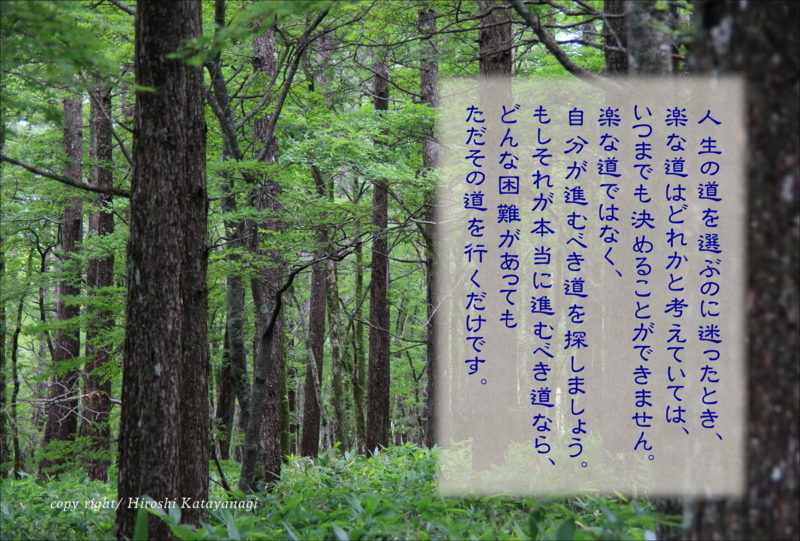 人生の道を選ぶのに迷ったとき、
楽な道はどれかと考えていては、
いつまでも決めることができません。
楽な道ではなく、
自分が進むべき道を探しましょう。
もしそれが本当に進むべき道なら、
どんな困難があっても
ただその道を行くだけです。
copy right/ Hiroshi Katayanagi